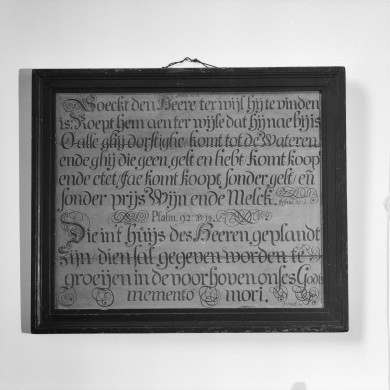 Soeckt den Heere ter wijl hij te vinden
is. Roept hem aen ter wijle dat hij nae bij is
O alle ghij dorstighe komt tot de Wateren
ende ghij die geen gelt en hebt komt koopt
ende etet, Jae komt koopt sonder gelt en
sonder prijs Wijn ende Melck.
Psalm. 92. 14.
Die int huijs des Heeren geplandt
zijn dien sal gegeven worden te
groeijen in de voorhoven onses Godts
memento mori.